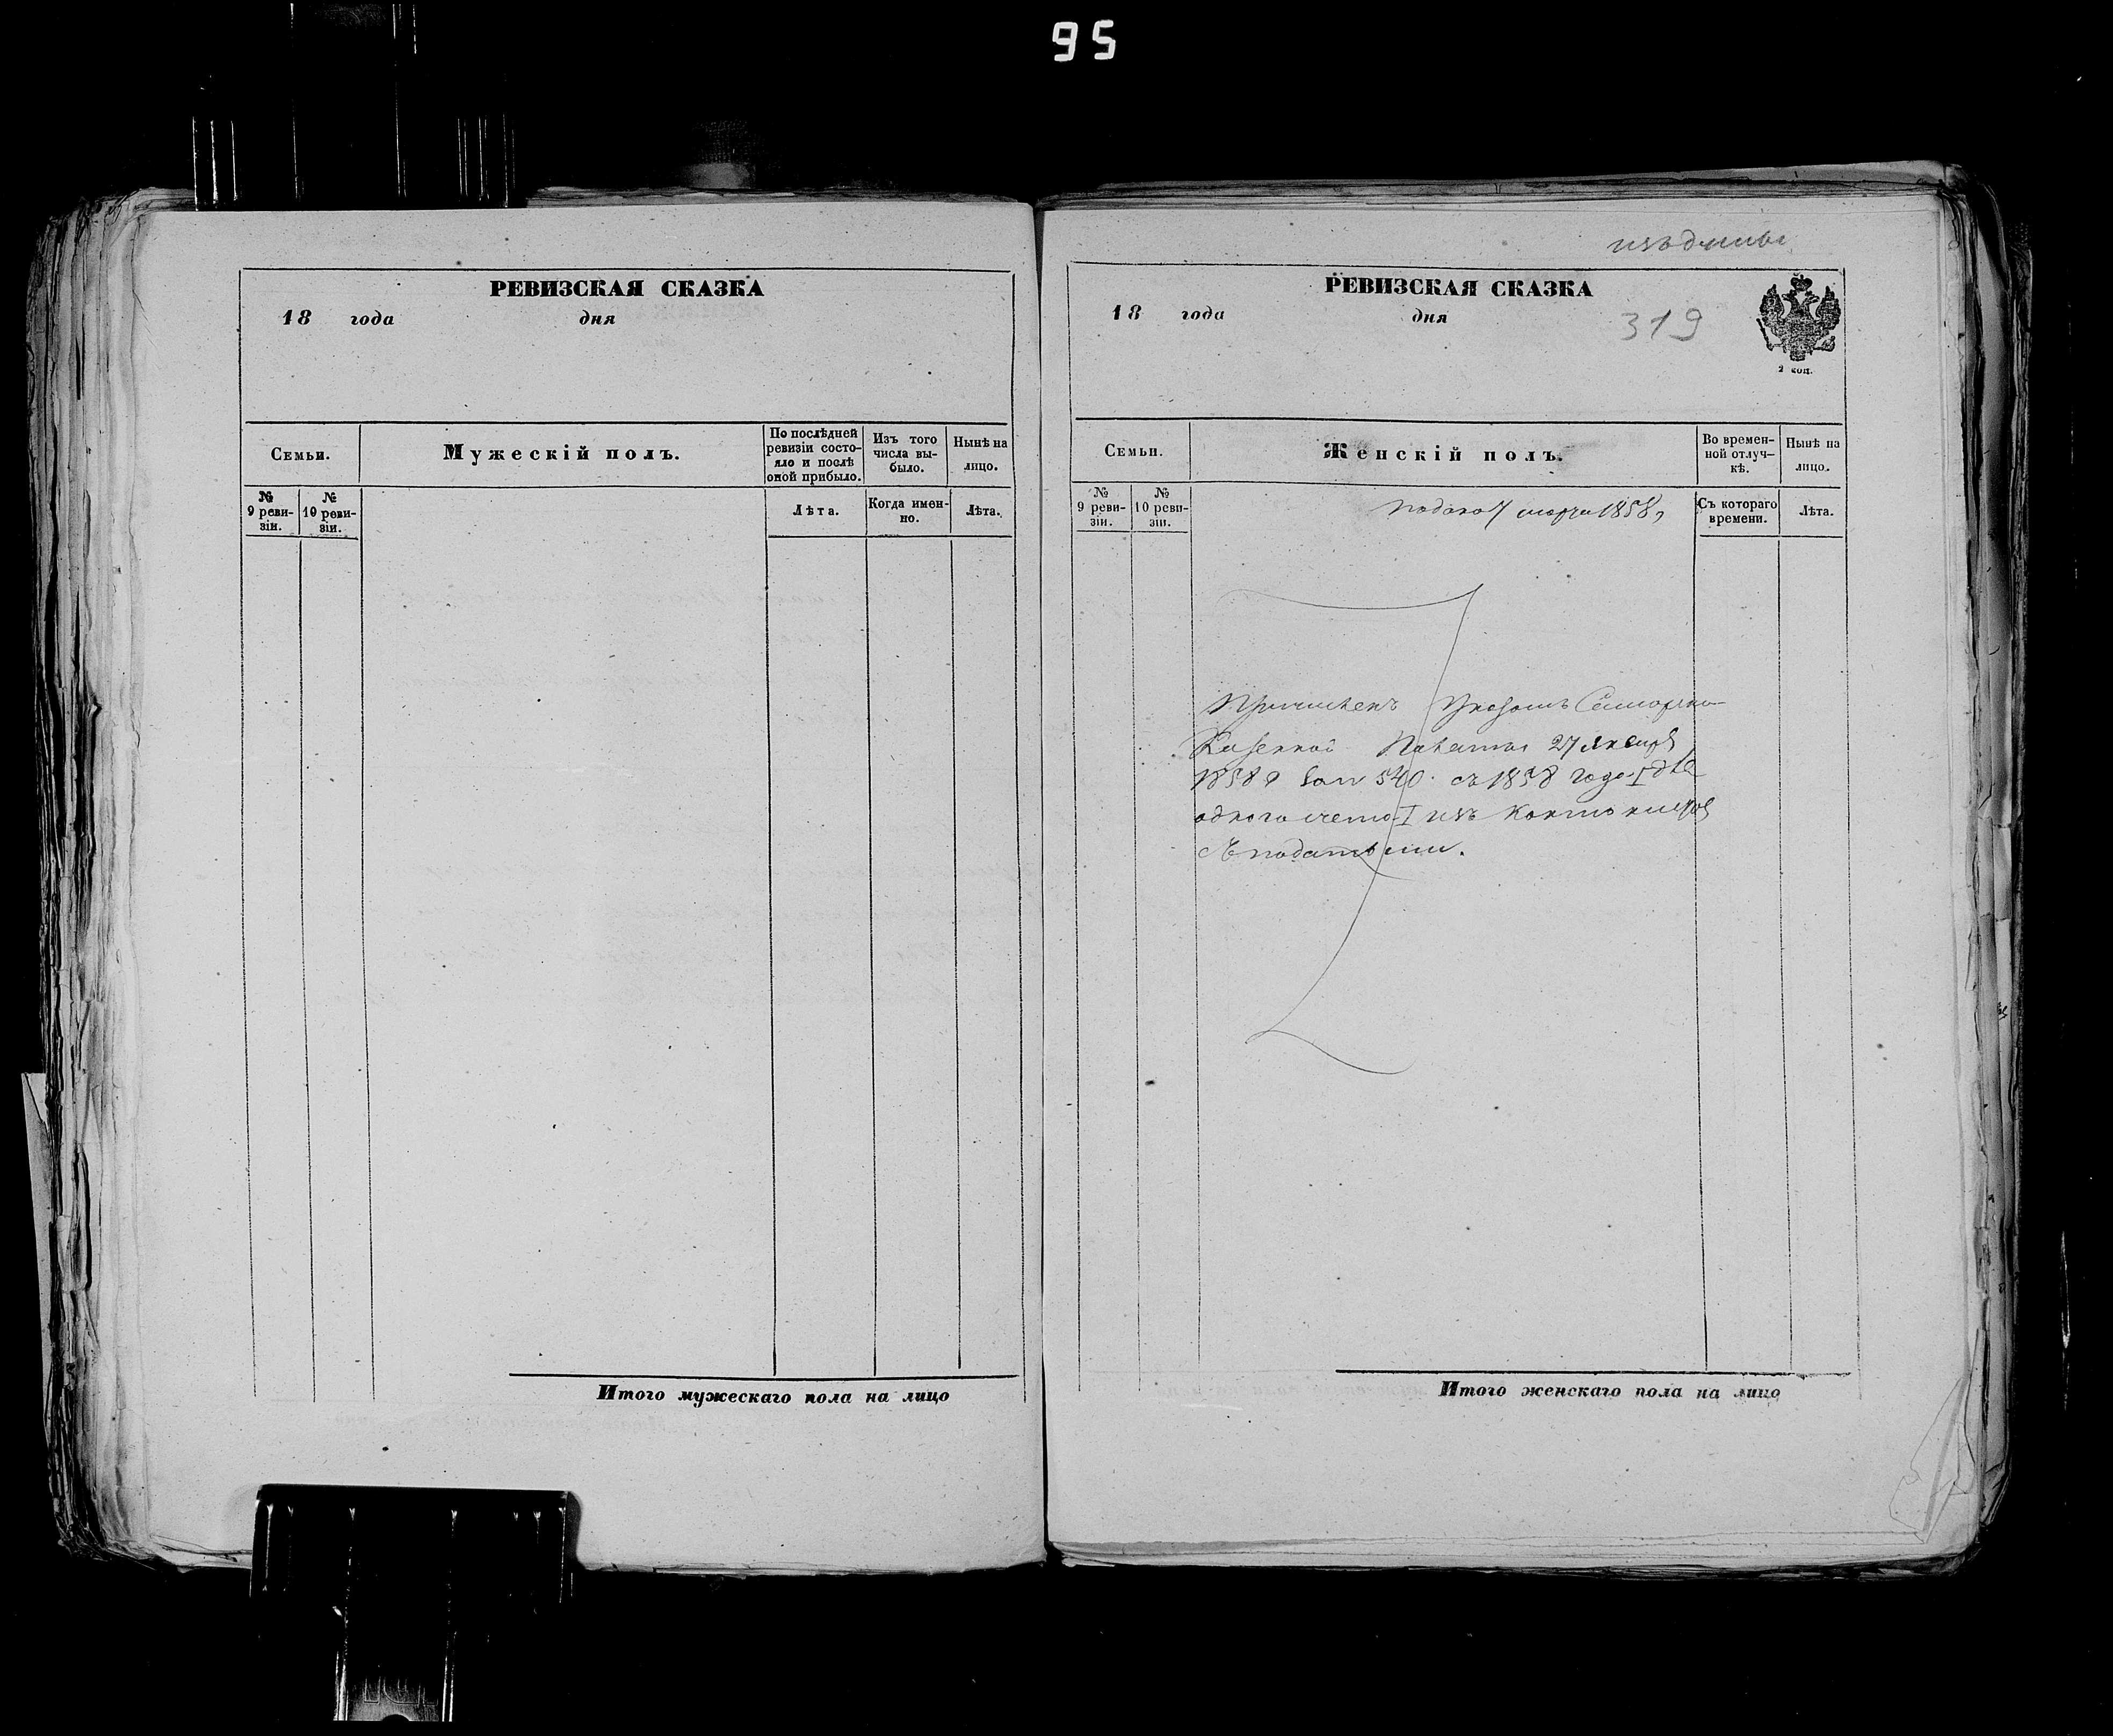 95
РЕВИЗСКАЯ СКАЗКА
18 года дня
Семьи.
Мужескій полъ.
По послѣдней ревизіи состо-
яло и послѣ
оной прибыло.
Изъ того
числа вы-
было.
Нынѣ на
лицо.
№
9 реви-
зіи.
№
10 реви-
зіи.
Лѣта.
Когда имен-
но.
Лѣта.
Итого мужескаго пола на лицо
РЕВИЗСКАЯ СКАЗКА
18 года дня
319
2 коп.
Семьи.
Женскій полъ.
Во времен-
ной отлуч-
кѣ.
Нынѣ на
лицо.
№
9 реви-
зіи.
№
10 реви-
зіи.
Съ котораго
времени.
Лѣта.
подано 7 марта 1858
Причисленъ Указомъ
Казенной Палаты 27 Января
1858 за № 540 съ 1858 года
одного
съ податьми.
Итого женскаго пола на лицо